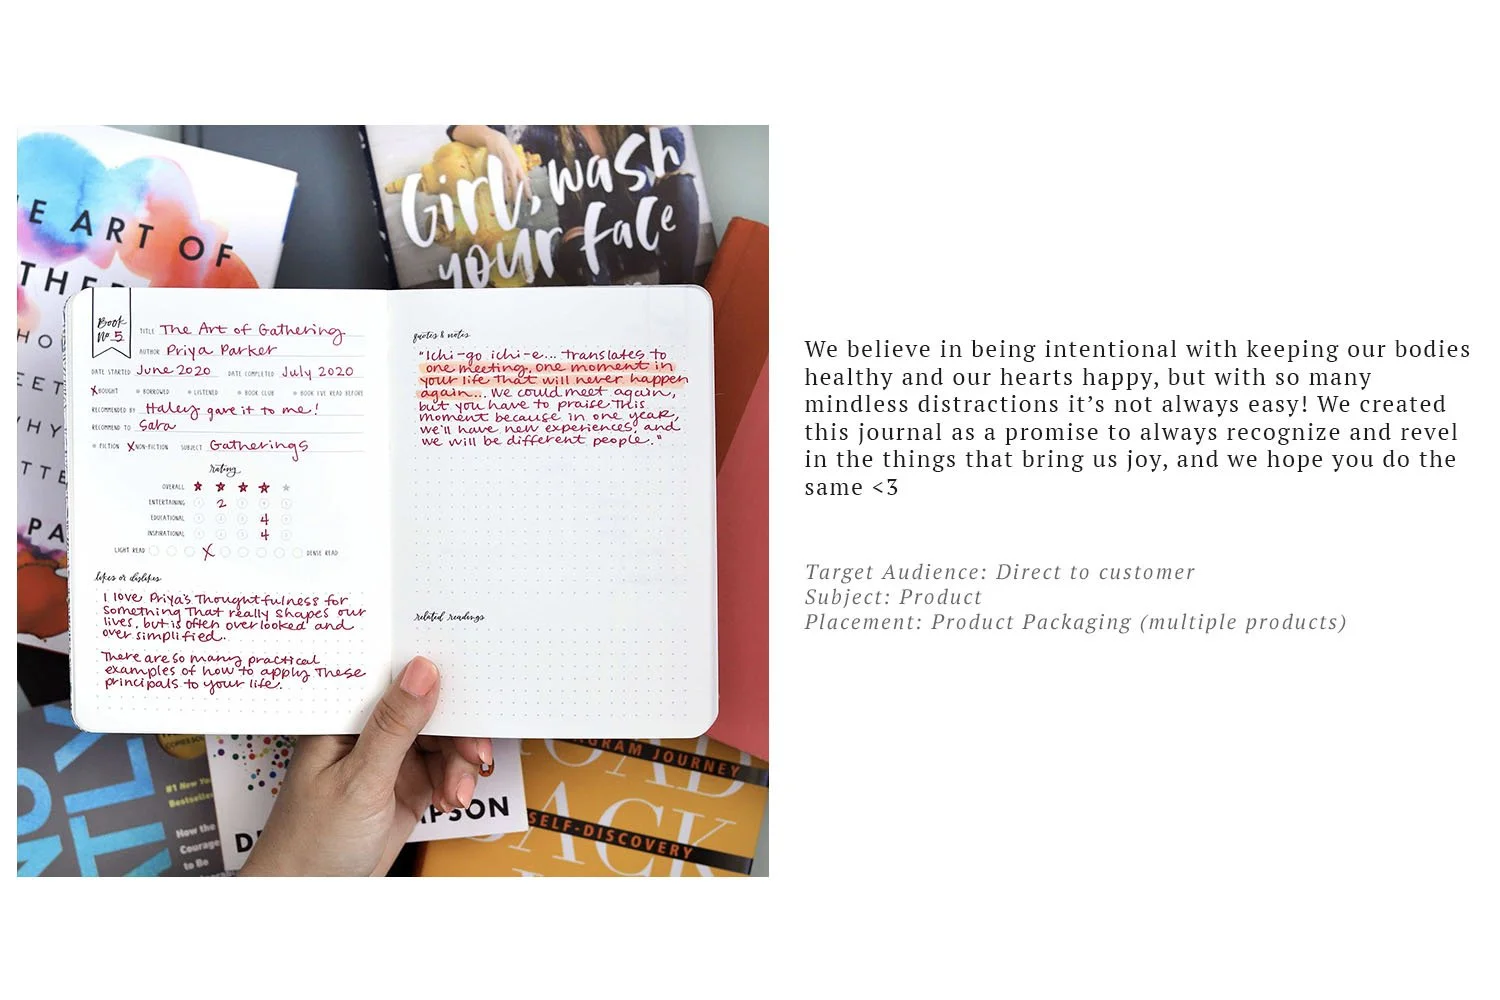 E ART OF
THE
HO
EET
WHY
TTE
PA
Girl, wash
your face
Book
No. 5
TITLE The Art of Gathering
AUTHOR Priya Parker
DATE STARTED June 2020 DATE COMPLETED July 2020
X BOUGHT BORROWED LISTENED BOOK CLUB BOOK I'VE READ BEFORE
RECOMMENDED BY Haley gave it to me!
RECOMMEND TO Sara
FICTION X NON-FICTION SUBJECT Gatherings
rating
OVERALL
ENTERTAINING 2
EDUCATIONAL 4
INSPIRATIONAL 4
LIGHT READ X DENSE READ
likes or dislikes
I love Priya's thoughtfulness for
something that really shapes our
lives, but is often overlooked and
over simplified.
There are so many practical
examples of how to apply these
principals to your life.
quotes & notes
"Ichi-go ichi-e... translates to
one meeting, one moment in
your life that will never happen
again... we could meet again,
but you have to praise this
moment because in one year,
we'll have new experiences, and
we will be different people."
related readings
ATLY
#1 New Yo
Bestselle
How the
Courage
to Be
DE
MPSON
GRAM JOURNEY
OAD
BACK
SELF-DISCOVERY
We believe in being intentional with keeping our bodies
healthy and our hearts happy, but with so many
mindless distractions it's not always easy! We created
this journal as a promise to always recognize and revel
in the things that bring us joy, and we hope you do the
same <3
Target Audience: Direct to customer
Subject: Product
Placement: Product Packaging (multiple products)